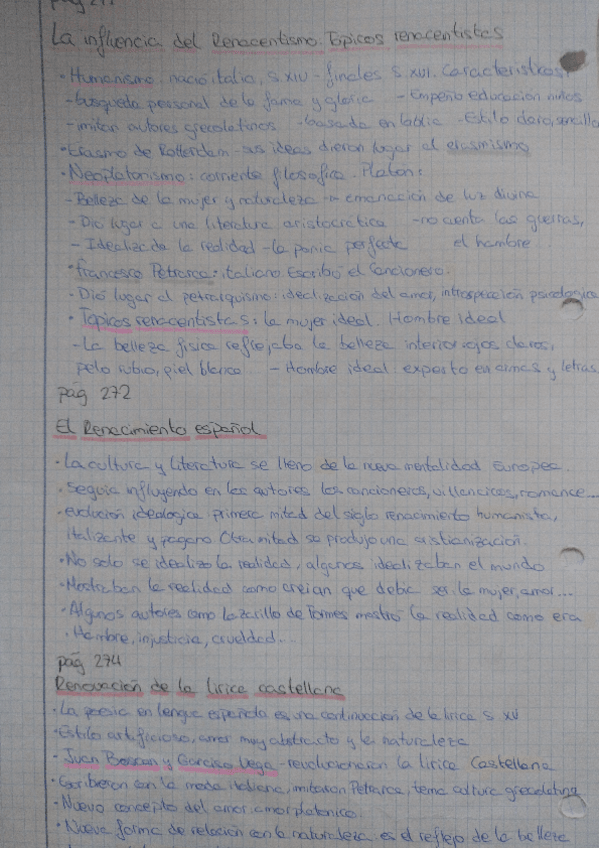 pag 271
La influencia del Renacentismo. Topicos renacentistas
· Humanismo: nació italia, s. XIV - finales s. XVI. Caracteristicas,
- busqueda personal de la fama y gloria - Empeño educación niños
- imitan autores grecolatinos - basada en latín - Estilo claro, sencillo
· Erasmo de Rotterdam - sus ideas dieron lugar al erasmismo
· Neoplatonismo: corriente filosofica - Platón:
- Belleza de la mujer y naturaleza → emanación de luz divina
- Dió lugar a una literatura aristocratica - no cuenta las guerras,
- Idealizada la realidad - la ponia perfecta el hambre
· Francesco Petrarca: italiano. Escribió el Cancionero.
· Dió lugar al petrarquismo: idealización del amor, introspección psicologica
· Topicos renacentistas: la mujer ideal. Hombre ideal
- La belleza fisica reflejaba la belleza interior: ojos claros,
pelo rubio, piel blanca - Hombre ideal experto en armas y letras
pág 272
El Renacimiento español
· La cultura y literatura se lleno de la nueva mentalidad Europea.
· Seguia influyendo en los autores los cancioneros, villancicos, romance...
· evolución ideologica: primera mitad del siglo renacimiento humanista,
italizante y pagano. Otra mitad se produjo una cristianización.
· No solo se idealizo la realidad, algunos idealizaban el mundo
· Mostraban la realidad como creian que debia ser. la mujer, amor...
· Algunos autores como Lazarillo de Tormes mostró la realidad como era
· Hambre, injusticia, crueldad...
pág 274
Renovación de la lirica castellana
· La poesia en lengua española es una continuación de la lirica s. XV
· Estilo artificioso, amor muy abstracto y la naturaleza
· Juan Boscan y Garcilaso Vega - revolucionaron la lirica Castellana
· Escribieron con la moda italiana, imitaron Petrarca, tema cultura grecolatina
· Nuevo concepto del amor: amor platonico.
· Nueva forma de relacion con la naturaleza. es el reflejo de la belleza